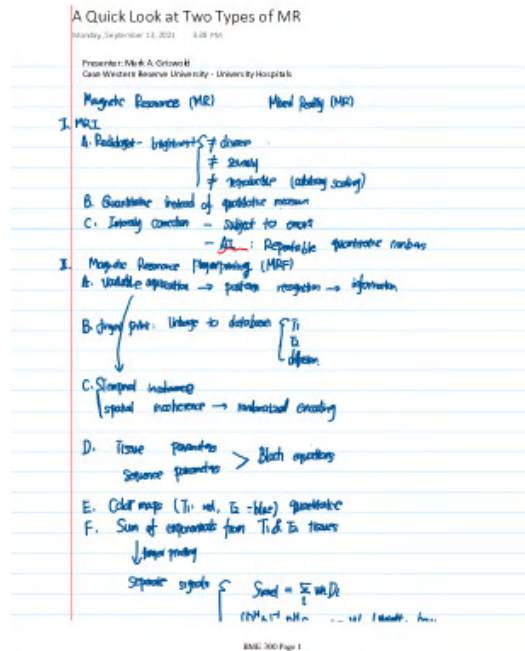 A Quick Look at Two Types of MR
Monday, September 13, 2021 3:38 PM
Presenter: Mark A. Griswold
Case Western Reserve University - University Hospitals
Magnetic Resonance (MR) Mixed Reality (MR)
I. MRI
A. Radiologist - brightness ≠ disease
≠ severity
≠ reproducible (arbitrary scaling)
B. Quantitative instead of qualitative measure
C. Intensity correction - subject to errors
- AI : Repeatable quantitative numbers
II. Magnetic Resonance Fingerprinting (MRF)
A. Variable acquisition → pattern recognition → information
B. fingerprint: linkage to database T1
T2
diffusion
C. temporal incoherence
spatial incoherence → randomized encoding
D. Tissue parameters
Sequence parameters > Bloch equations
E. Color maps (T1: red, T2 - blue) quantitative
F. Sum of exponentials from T1 & T2 tissues
↓ fingerprinting
Separate signals
BME 300 Page 1